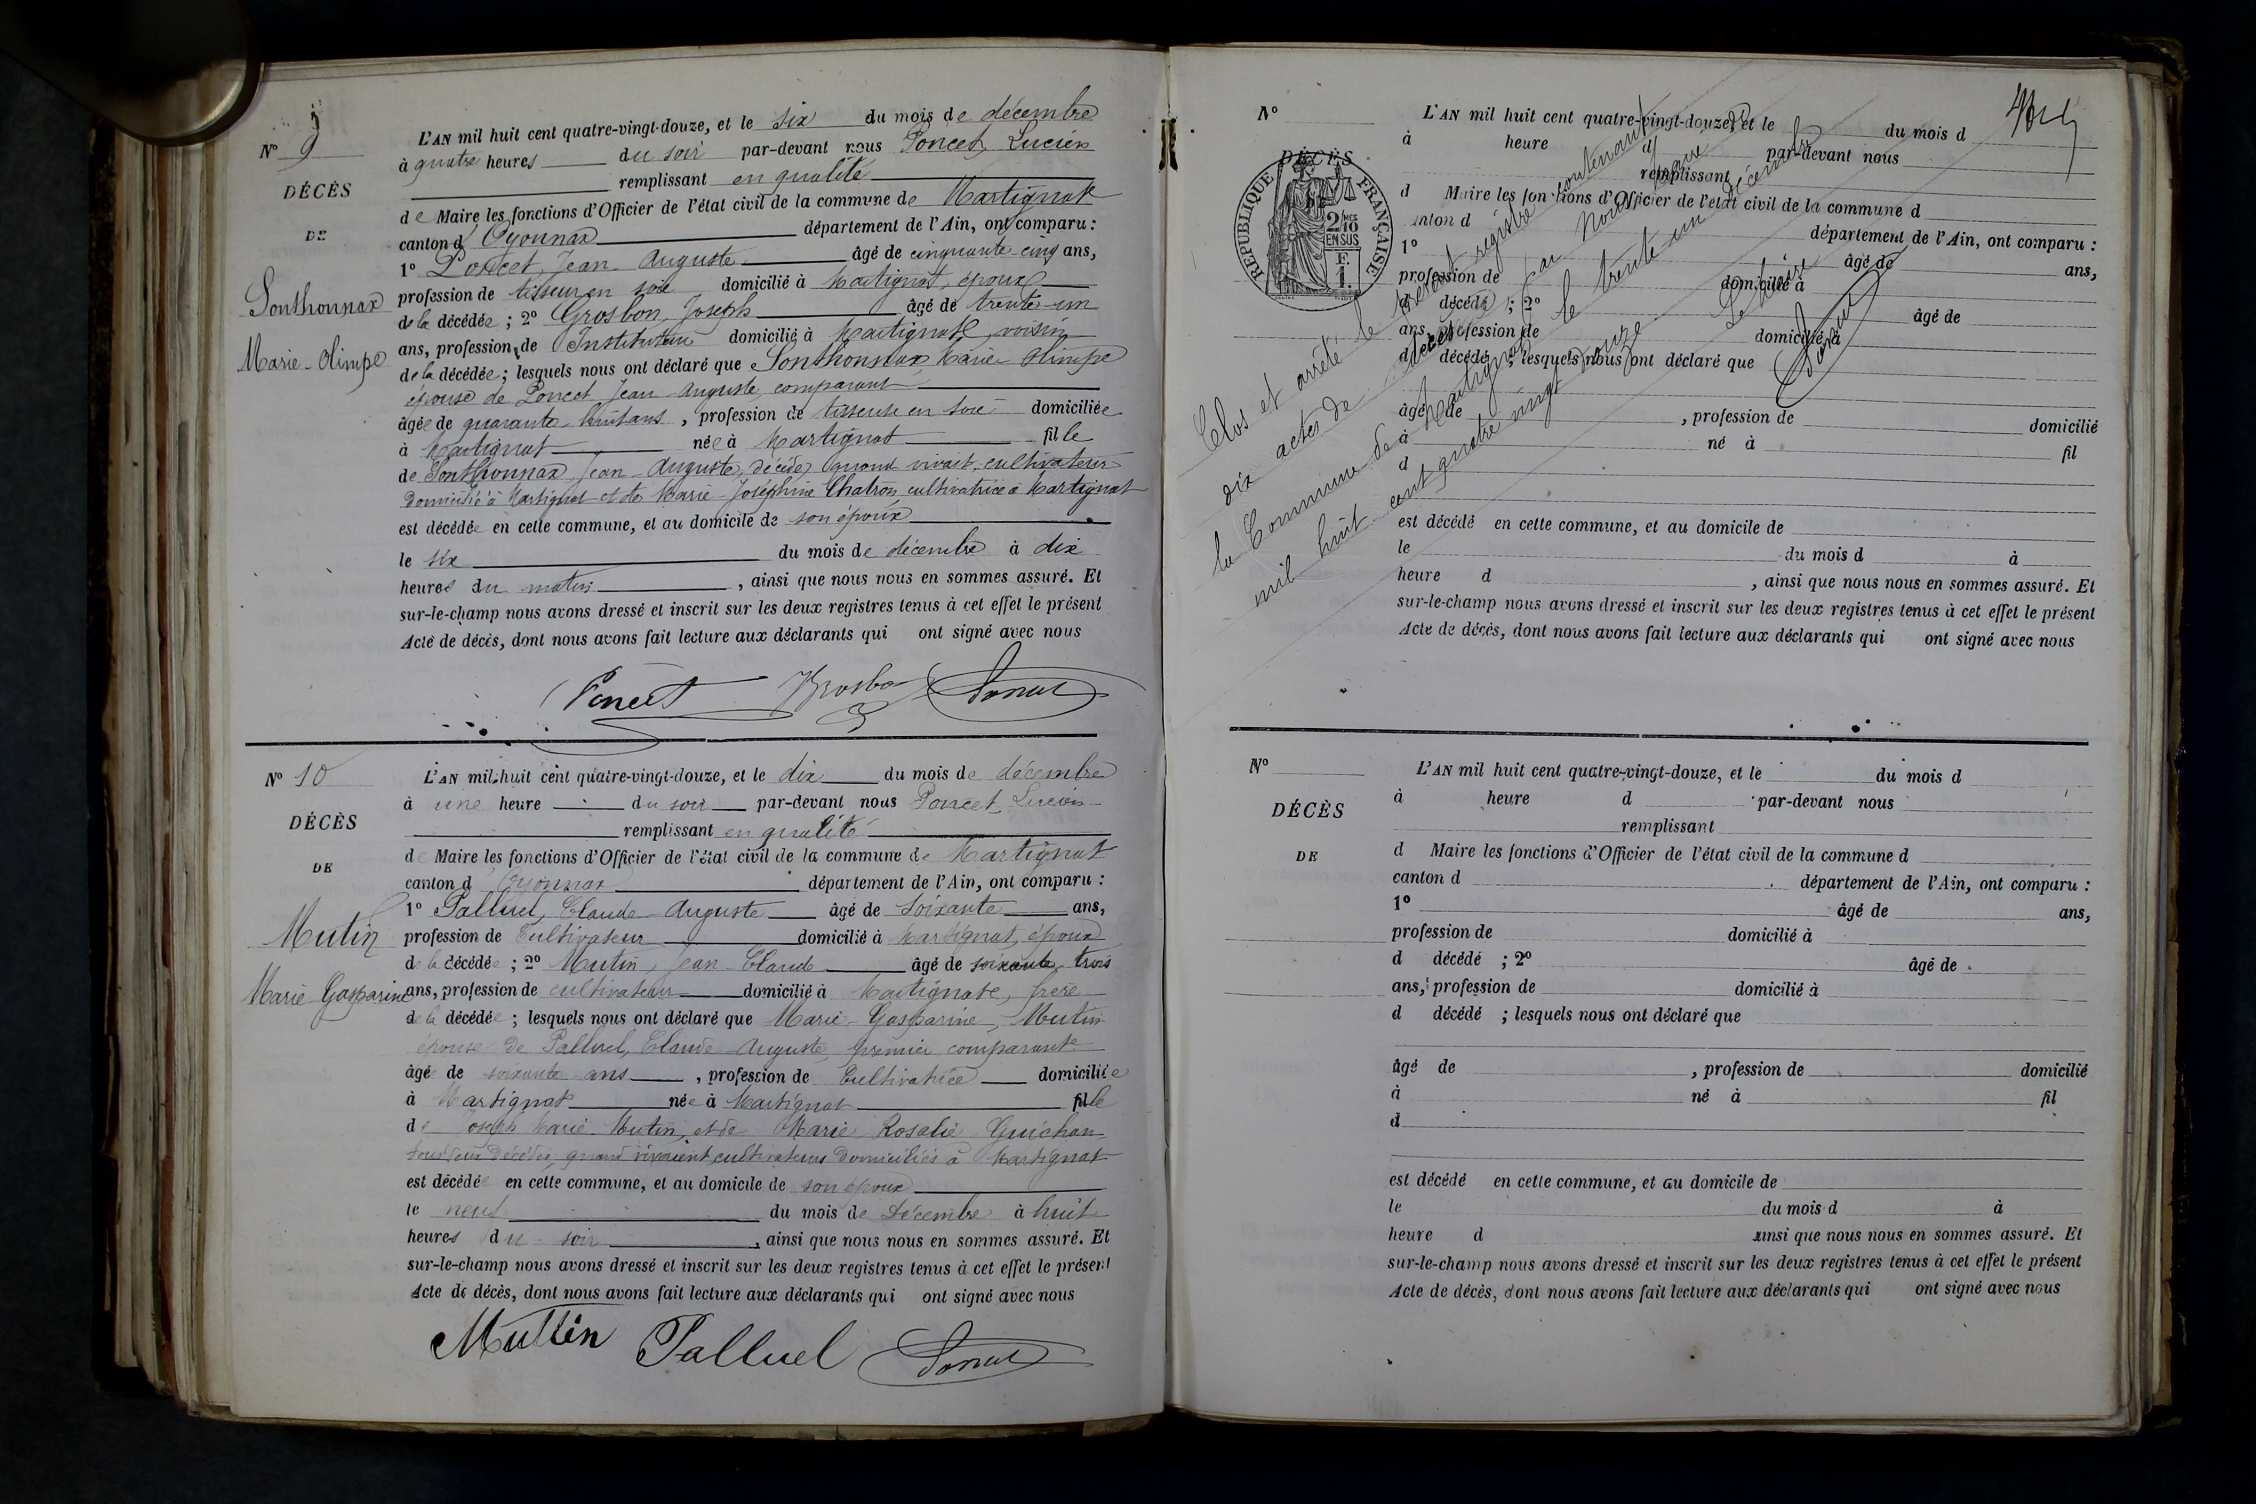 N° 9
DÉCÈS
DE
Sonthonnax
Marie-Olimpe
L'AN mil huit cent quatre-vingt-douze, et le six du mois de décembre
à quatre heures du soir par-devant nous Poncet, Lucien
remplissant en qualité
de Maire les fonctions d'Officier de l'état civil de la commune de Martignat
canton d'Oyonnax département de l'Ain, ont comparu :
1° Poncet, Jean-Auguste âgé de cinquante-cinq ans,
profession de tisseur en soie domicilié à Martignat, époux
de la décédée ; 2° Grosbon, Joseph âgé de trente-un
ans, profession de Instituteur domicilié à Martignat, voisin
de la décédée ; lesquels nous ont déclaré que Sonthonnax, Marie-Olimpe
épouse de Poncet Jean-Auguste, comparant
âgée de quarante-huit ans, profession de tisseuse en soie domiciliée
à Martignat née à Martignat fille
de Sonthonnax, Jean-Auguste, décédé quand vivait cultivateur
domicilié à Martignat et de Marie-Joséphine Chatron, cultivatrice à Martignat
est décédée en cette commune, et au domicile de son époux
le six du mois de décembre à dix
heures du matin, ainsi que nous nous en sommes assuré. Et
sur-le-champ nous avons dressé et inscrit sur les deux registres tenus à cet effet le présent
Acte de décès, dont nous avons fait lecture aux déclarants qui ont signé avec nous
Poncet Grosbon Poncet
N° 10
DÉCÈS
DE
Mutin
Marie Gasparine
L'AN mil huit cent quatre-vingt-douze, et le dix du mois de décembre
à une heure du soir par-devant nous Poncet, Lucien
remplissant en qualité
de Maire les fonctions d'Officier de l'état civil de la commune de Martignat
canton d'Oyonnax département de l'Ain, ont comparu :
1° Palluel, Claude-Auguste âgé de soixante ans,
profession de Cultivateur domicilié à Martignat, époux
de la décédée ; 2° Mutin, Jean-Claude âgé de soixante-trois
ans, profession de cultivateur domicilié à Martignat, frère
de la décédée ; lesquels nous ont déclaré que Marie-Gasparine, Mutin
épouse de Palluel, Claude Auguste, premier comparant
âgé de soixante ans, profession de Cultivatrice domiciliée
à Martignat née à Martignat fille
de Joseph Marie Mutin, et de Marie Rosalie Guichon
tous deux décédés, quand vivaient cultivateurs domiciliés à Martignat
est décédée en cette commune, et au domicile de son époux
le neuf du mois de décembre à huit
heures du soir, ainsi que nous nous en sommes assuré. Et
sur-le-champ nous avons dressé et inscrit sur les deux registres tenus à cet effet le présent
Acte de décès, dont nous avons fait lecture aux déclarants qui ont signé avec nous
Muttin Palluel Poncet
N°
DÉCÈS
RÉPUBLIQUE FRANÇAISE
2/10 EN SUS
F. 1.
L'AN mil huit cent quatre-vingt-douze, et le du mois d
à heure d par-devant nous
remplissant
d Maire les fonctions d'Officier de l'état civil de la commune d
canton d département de l'Ain, ont comparu :
1° âgé de ans,
profession de domicilié à
d décédé ; 2° âgé de
ans, profession de domicilié à
d décédé ; lesquels nous ont déclaré que
âgé de , profession de domicilié
à né à fil
d
est décédé en cette commune, et au domicile de
le du mois d à
heure d , ainsi que nous nous en sommes assuré. Et
sur-le-champ nous avons dressé et inscrit sur les deux registres tenus à cet effet le présent
Acte de décès, dont nous avons fait lecture aux déclarants qui ont signé avec nous
Clos et arrêté le présent registre contenant
dix actes de décès par nous Maire de
la Commune de Martignat le trente un décembre
mil huit cent quatre vingt douze
Le Maire
Poncet
N°
DÉCÈS
DE
L'AN mil huit cent quatre-vingt-douze, et le du mois d
à heure d par-devant nous
remplissant
d Maire les fonctions d'Officier de l'état civil de la commune d
canton d département de l'Ain, ont comparu :
1° âgé de ans,
profession de domicilié à
d décédé ; 2° âgé de
ans, profession de domicilié à
d décédé ; lesquels nous ont déclaré que
âgé de , profession de domicilié
à né à fil
d
est décédé en cette commune, et au domicile de
le du mois d à
heure d ainsi que nous nous en sommes assuré. Et
sur-le-champ nous avons dressé et inscrit sur les deux registres tenus à cet effet le présent
Acte de décès, dont nous avons fait lecture aux déclarants qui ont signé avec nous